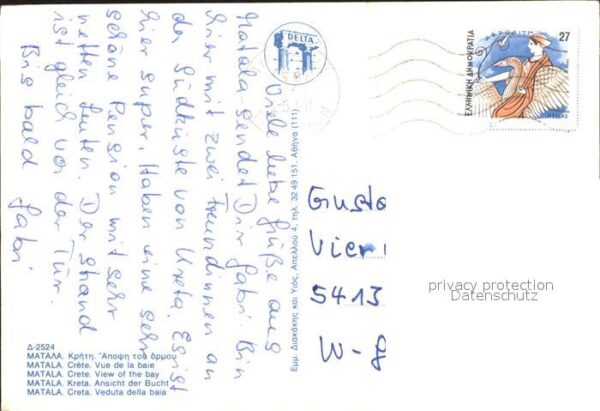 Viele liebe Grüße aus
Matala sendet Dir Gabi. Bin
hier mit zwei Freundinnen an
der Südküste von Kreta. Es ist
hier super. Haben eine sehr
schöne Pension mit sehr
netten Leuten. Der Strand
ist gleich vor der Tür.
Bis bald Gabi
DELTA
27
ΑΦΡΟΔΙΤΗ
ΕΛΛΗΝΙΚΗ ΔΗΜΟΚΡΑΤΙΑ
HELLAS
Εμμ. Διακάκης και Υιός, Απελλού 4, τηλ. 32 49 151, Αθήνα (111)
Giusto
Vieri
5413
W-8
privacy protection
Datenschutz
Δ-2524
ΜΑΤΑΛΑ. Κρήτη. Ἄποψη τοῦ ὅρμου
MATALA. Crète. Vue de la baie
MATALA. Crete. View of the bay
MATALA. Kreta. Ansicht der Bucht
MATALA. Creta. Veduta della baia